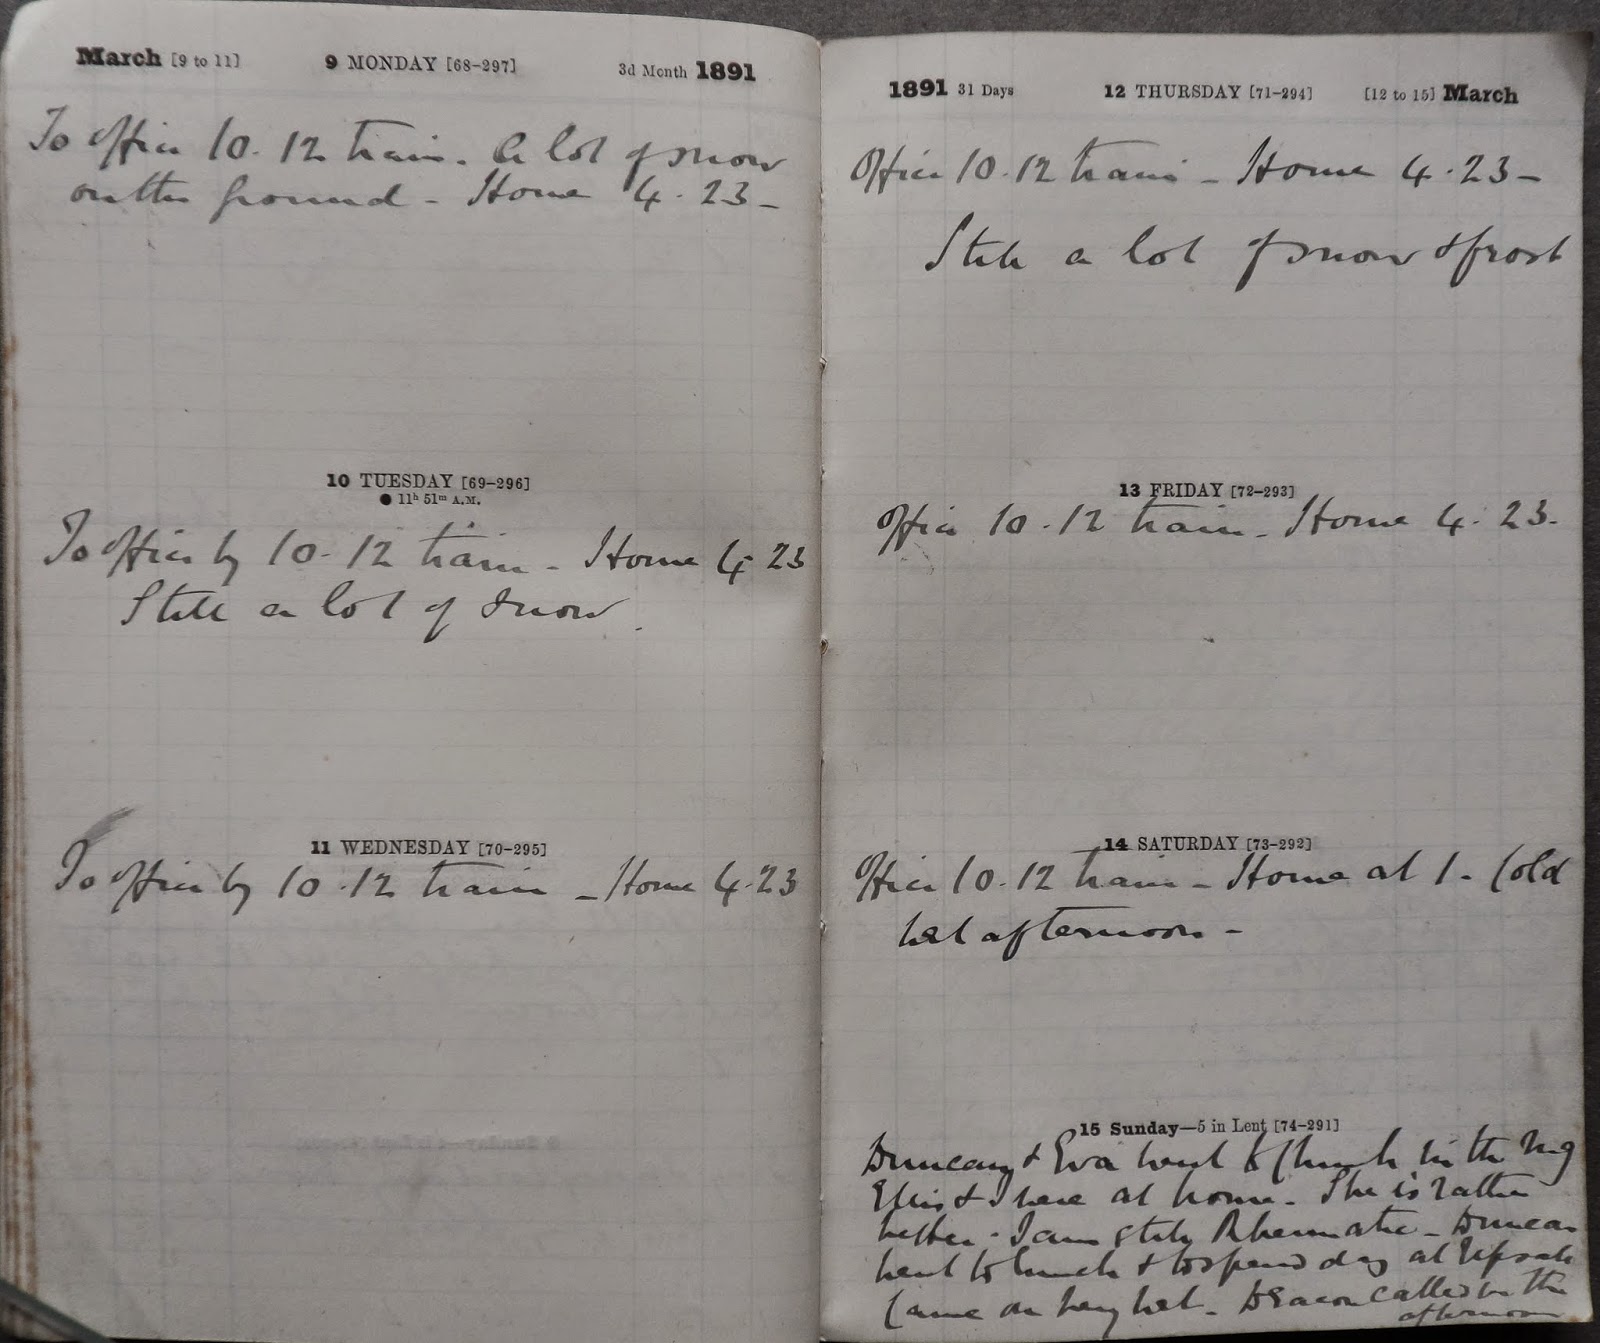 March [9 to 11] 9 MONDAY [68-297] 3d Month 1891
To office 10.12 train. A lot of snow
on the ground - Home 4.23 -
10 TUESDAY [69-296]
● 11h 51m A.M.
To office by 10.12 train - Home 4.23
Still a lot of snow.
11 WEDNESDAY [70-295]
To office by 10.12 train - Home 4.23
1891 31 Days 12 THURSDAY [71-294] [12 to 15] March
Office 10.12 train - Home 4.23 -
Still a lot of snow & frost
13 FRIDAY [72-293]
Office 10.12 train - Home 4.23.
14 SATURDAY [73-292]
Office 10.12 train - Home at 1. Cold
wet afternoon -
15 Sunday—5 in Lent [74-291]
Duncan & Eva went to Church in the
Ellis & I here at home. She is rather
better. I am still Rheumatic - Duncan
went to lunch & to spend day at
Came on very wet - Deacon called in the
afternoon